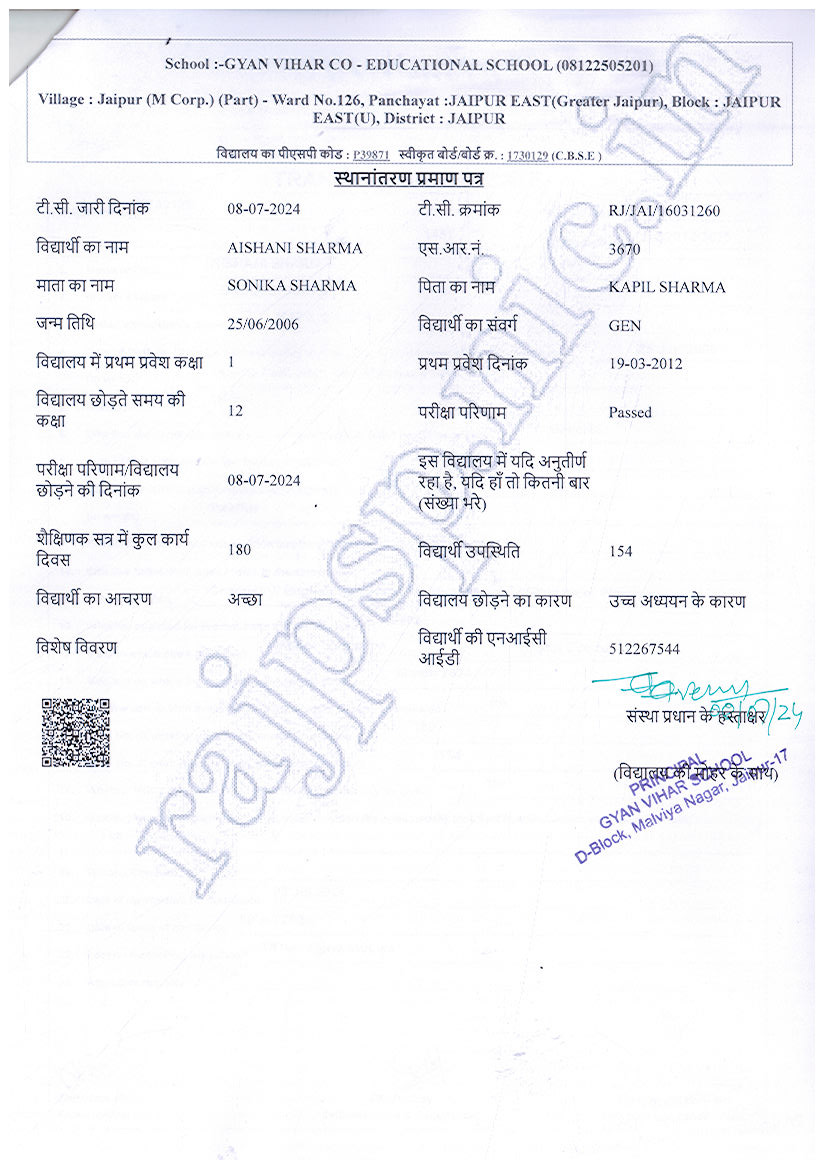 School :-GYAN VIHAR CO - EDUCATIONAL SCHOOL (08122505201)
Village : Jaipur (M Corp.) (Part) - Ward No.126, Panchayat :JAIPUR EAST(Greater Jaipur), Block : JAIPUR
EAST(U), District : JAIPUR
विद्यालय का पीएसपी कोड : P39871 स्वीकृत बोर्ड/बोर्ड क्र. : 1730129 (C.B.S.E )
स्थानांतरण प्रमाण पत्र
टी.सी. जारी दिनांक 08-07-2024 टी.सी. क्रमांक RJ/JAI/16031260
विद्यार्थी का नाम AISHANI SHARMA एस.आर.नं. 3670
माता का नाम SONIKA SHARMA पिता का नाम KAPIL SHARMA
जन्म तिथि 25/06/2006 विद्यार्थी का संवर्ग GEN
विद्यालय में प्रथम प्रवेश कक्षा 1 प्रथम प्रवेश दिनांक 19-03-2012
विद्यालय छोड़ते समय की
कक्षा 12 परीक्षा परिणाम Passed
परीक्षा परिणाम/विद्यालय
छोड़ने की दिनांक 08-07-2024
इस विद्यालय में यदि अनुतीर्ण
रहा है, यदि हाँ तो कितनी बार
(संख्या भरे)
शैक्षिणक सत्र में कुल कार्य
दिवस 180 विद्यार्थी उपस्थिति 154
विद्यार्थी का आचरण अच्छा विद्यालय छोड़ने का कारण उच्च अध्ययन के कारण
विशेष विवरण
विद्यार्थी की एनआईसी
आईडी 512267544
संस्था प्रधान के हस्ताक्षर
(विद्यालय की मोहर के साथ)
PRINCIPAL
GYAN VIHAR SCHOOL
D-Block, Malviya Nagar, Jaipur-17
rajpsp.nic.in